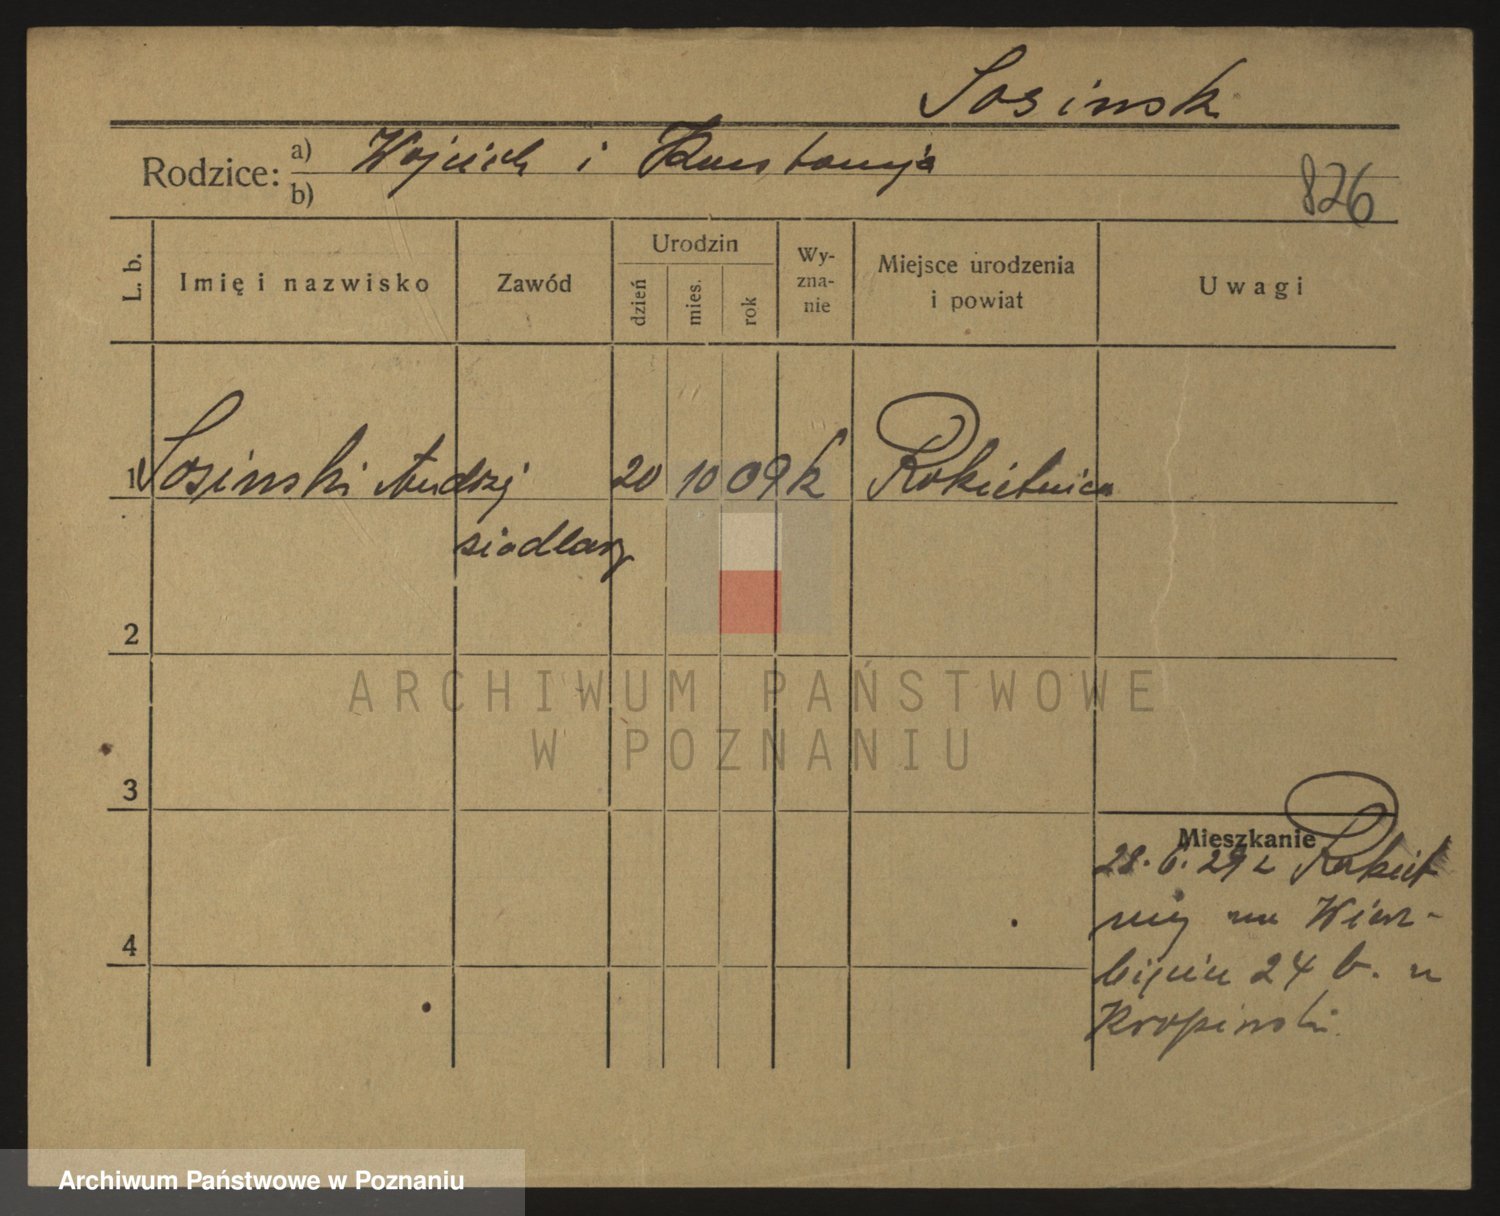 Sosinsk
Rodzice: a) Wojciech i Konstancja
b)
826
L. b.
Imię i nazwisko
Zawód
Urodzin
dzień
mies.
rok
Wy-
zna-
nie
Miejsce urodzenia
i powiat
Uwagi
1 Sosinski Andrzej 20 10 09 k Rokietnica
siodlarz
2
ARCHIWUM PAŃSTWOWE
W POZNANIU
3
Mieszkanie
28.6.29 z Rokiet
nicy na Wierz-
bięcice 24 b. u
Kropinski
4
Archiwum Państwowe w Poznaniu